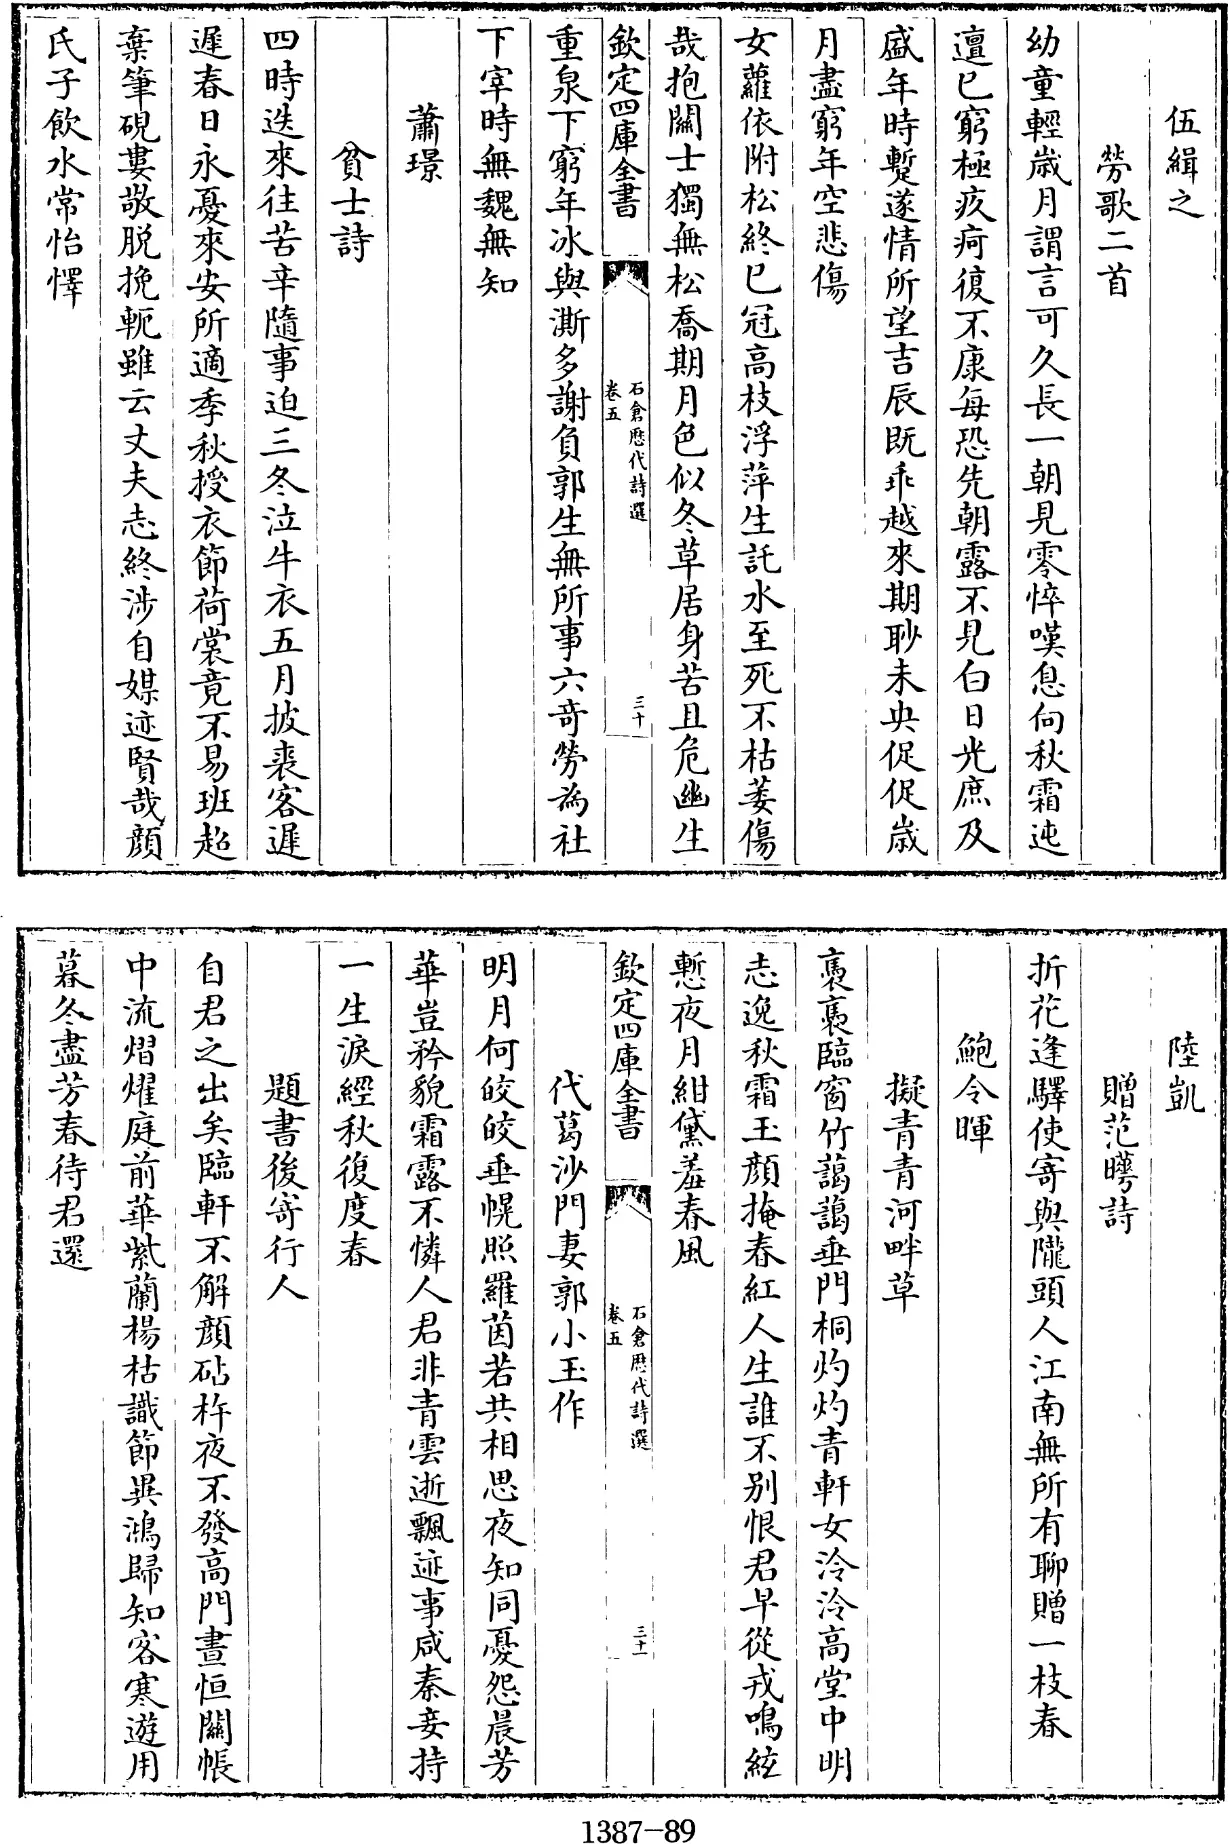 伍緝之
勞歌二首
幼童輕歲月謂言可久長一朝見零悴嘆息向秋霜迍
邅已窮極疚痾復不康每恐先朝露不見白日光庶及
盛年時蹔遂情所望吉辰既乖越來期眇未央促促歲
月盡窮年空悲傷
女蘿依附松終已冠高枝浮萍生託水至死不枯萎傷
哉抱關士獨無松喬期月色似冬草居身苦且危幽生
欽定四庫全書
石倉歷代詩選
卷五
三十
重泉下窮年冰與澌多謝負郭生無所事六奇勞為社
下宰時無魏無知
蕭璟
貧士詩
四時迭來往苦辛隨事迫三冬泣牛衣五月披裘客遲
遲春日永憂來安所適季秋授衣節荷裳竟不易班超
棄筆硯婁敬脫挽軛雖云丈夫志終涉自媒迹賢哉顏
氏子飲水常怡懌
陸凱
贈范曄詩
折花逢驛使寄與隴頭人江南無所有聊贈一枝春
鮑令暉
擬青青河畔草
裊裊臨窗竹藹藹垂門桐灼灼青軒女泠泠高堂中明
志逸秋霜玉顏掩春紅人生誰不別恨君早從戎鳴絃
慙夜月紺黛羞春風
欽定四庫全書
石倉歷代詩選
卷五
三十一
代葛沙門妻郭小玉作
明月何皎皎垂幌照羅茵若共相思夜知同憂怨晨芳
華豈矜貌霜露不憐人君非青雲逝飄迹事咸秦妾持
一生淚經秋復度春
題書後寄行人
自君之出矣臨軒不解顏砧杵夜不發高門晝恒關帳
中流熠燿庭前華紫蘭楊枯識節異鴻歸知客寒遊用
暮冬盡芳春待君還
1387-89